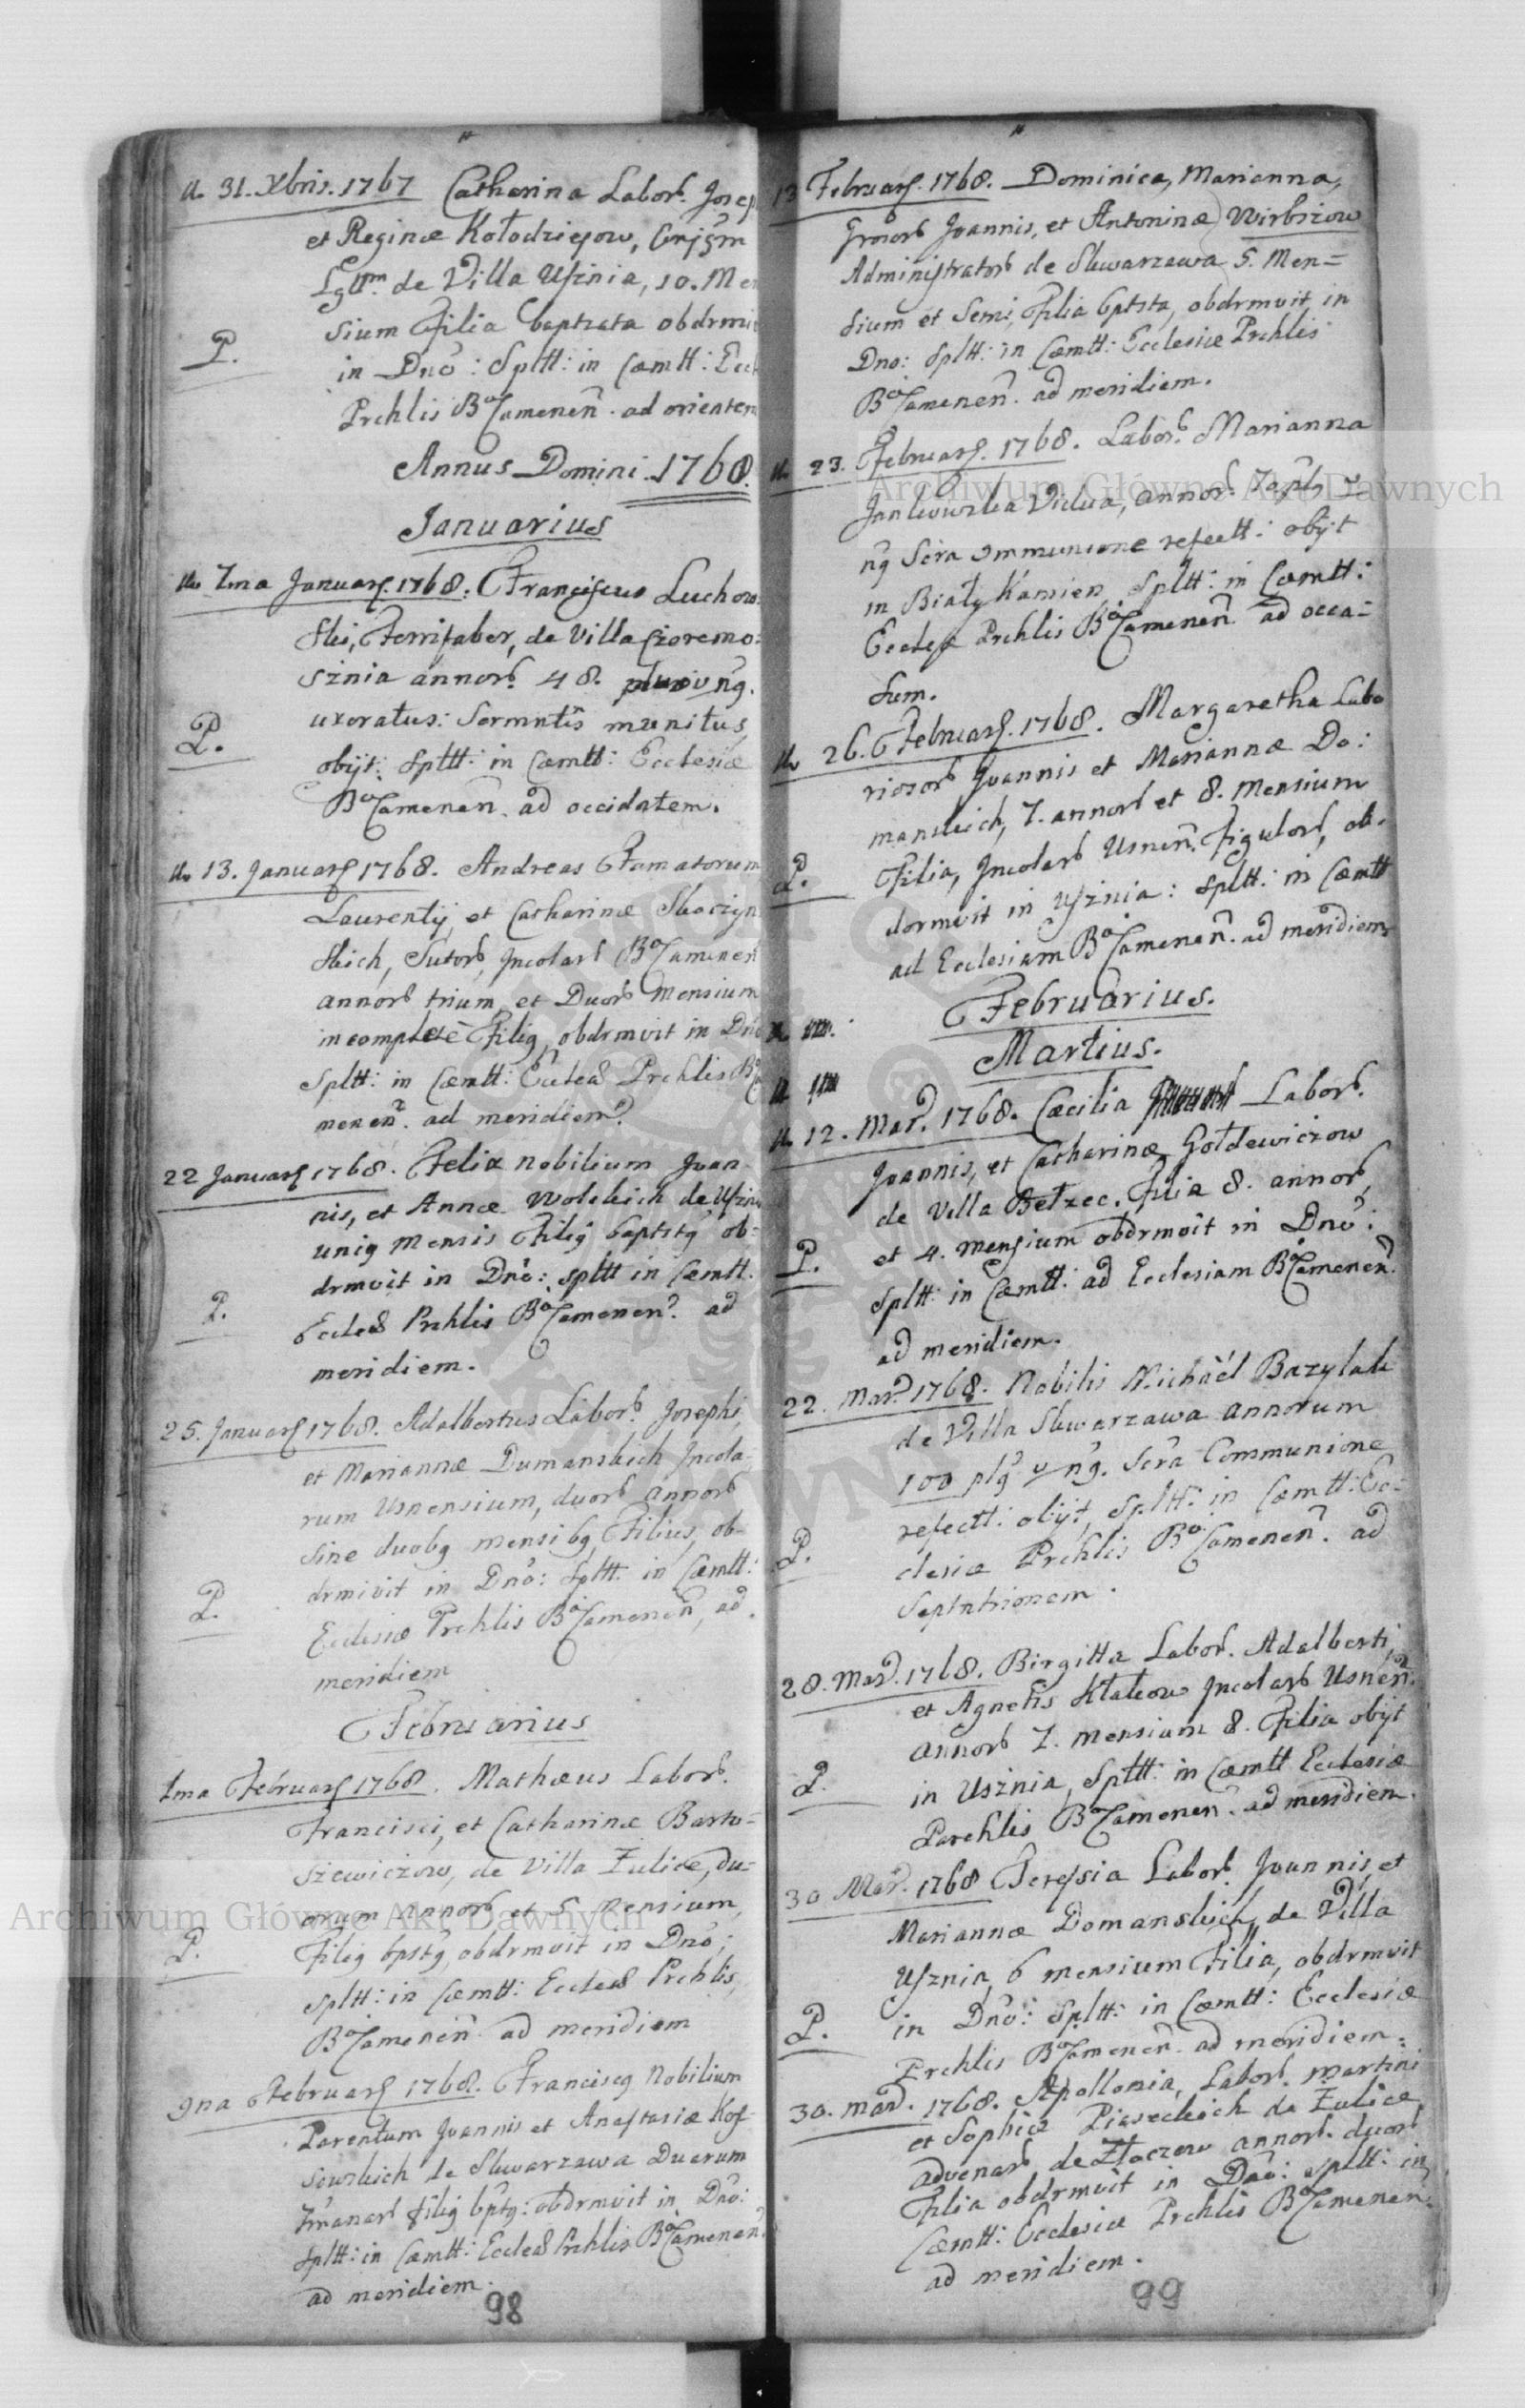 31. Xbris. 1767 Catharina Labor. Josep
et Reginæ Kołodzieyow,
de Villa Uſznia, 10. Men
sium Filia baptzata obdrmi
P.
in Dno: Spltt: in Cæmtt: Eccl
Prchlis BaCamenen. ad orientem
Annus Domini 1768.
Januarius
7ma Januar. 1768. Franciſcus Luchow
ski, Ferrifaber, de Villa Czoremo:
sznia annor. 48.
uxoratus: Sacrmntis munitus,
P.
obijt: Spltt: in Cæmtt: Ecclesiæ
BaCamenen. ad occidntem.
13. Januar 1768. Andreas Famatorum
Laurentij, et Catharinæ Skoczyn
skich, Sutor, Incolar BaCamenen
annor trium, et Duor Mensium
incomplete Filig, obdrmvit in Dno
Spltt: in Cæmtt: Eccleæ Prchlis Ba
menen. ad meridiem.
22 Januar 1768. Felix nobilium Joan
nis, et Annæ Wolskich de Uſzni
unig Mensis Filig baptztg ob-
drmvit in Dno: spltt in Cæmtt.
P.
Eccleæ Prchlis BaCamenen. ad
meridiem.
25. Januar 1768. Adalbertus Labor. Josephi,
et Mariannæ Dumanskich Incola-
rum Usnensium, duor annor
sine duobg mensibg, Filius, ob-
drmivit in Dno: Spltt: in Cæmtt:
P.
Ecclesiæ Prchlis BaCamenen, ad
meridiem
Februarius
1ma Februar 1768. Mathæus Labor.
Francisci, et Catharinæ Barto=
szewiczow, de Villa Żulice, du=
orum annor et 5 Mensium,
P.
Filig bpstg, obdrmvit in Dno;
spltt: in Cæmtt: Eccleæ Prchlis,
BaCamenen. ad meridiem
9na Februar 1768. Franciscg Nobilium
Parentum Joannis et Anaſtasiæ Koſ-
sowskich de Skwarzawa Duarum
filig bptg: obdrmvit in Dno:
spltt: in Cæmtt: Eccleæ Prchlis BaCamenen.
ad meridiem.
98
13 Februar. 1768. Dominica, Marianna,
Joannis, et Antoninæ Wirbszow
Administrator de Skwarzawa 5. Men=
sium et Semi, Filia bptzta, obdrmvit in
Dno: Spltt: in Cæmtt: Ecclesiæ Prchlis
BaCamenen. ad meridiem.
23. Februar. 1768. Labor. Marianna
Jankowska Vidua, annor.
Scra Communione refectt: obijt
in Biały Kamien, Spltt: in Cæmtt:
Prchlis BaCamenen ad occa=
sum.
26. Februar. 1768. Margaretha Labo
riosor Joannis et Mariannæ Do:
manskich, 7. annor et 8. Mensium
P.
Filia, Incolar Usnen. Figulor, ob-
dormvit in Uſznia: spltt: in Cæmtt
ad Ecclesiam BaCamenen. ad meridiem.
Februarius.
Martius.
12. Mar. 1768. Cæcilia Labor.
Joannis, et Catharinæ Gołdewiczow
de Villa Bełzec. Filia 8. annor,
P.
et 4. Menſium obdrmvit in Dno:
Spltt: in Cæmtt: ad Ecclesiam BaCamenen.
ad meridiem.
22. Mar. 1768. Nobilis Michaël Bazylak
de Villa Skwarzawa annorum
100 plg v ng. Scra Communione
refectt: obijt, Spltt: in Cæmtt: Ec-
P.
clesiæ Prchlis BaCamenen. ad
Septntrionem.
28. Mar. 1768. Birgitta Labor. Adalberti,
et Agnetis Kłakow Incolar Usnen.
annor 7. Mensium 8. Filia obijt
P.
in Usznia, Spltt: in Cæmtt Ecclesiæ
Parchlis BaCamenen. ad meridiem.
30 Mar. 1768 Tereſsia Labor. Joannis, et
Mariannæ Domanskich, de Villa
Uſznia, 6 mensium Filia, obdrmvit
P.
in Dno: Spltt: in Cæmtt: Ecclesiæ
Prchlis BaCamenen. ad meridiem.
30. Mar. 1768. Apollonia, Labor. Martini
et Sophiæ Piaseckich de Żulice,
advenar de Złoczow annor. duor
Filia obdrmvit in Dno: spltt: in
Cæmtt: Ecclesiæ Prchlis BaCamenen.
ad meridiem.
99
Archiwum Główne Akt Dawnych
Archiwum Główne Akt Dawnych